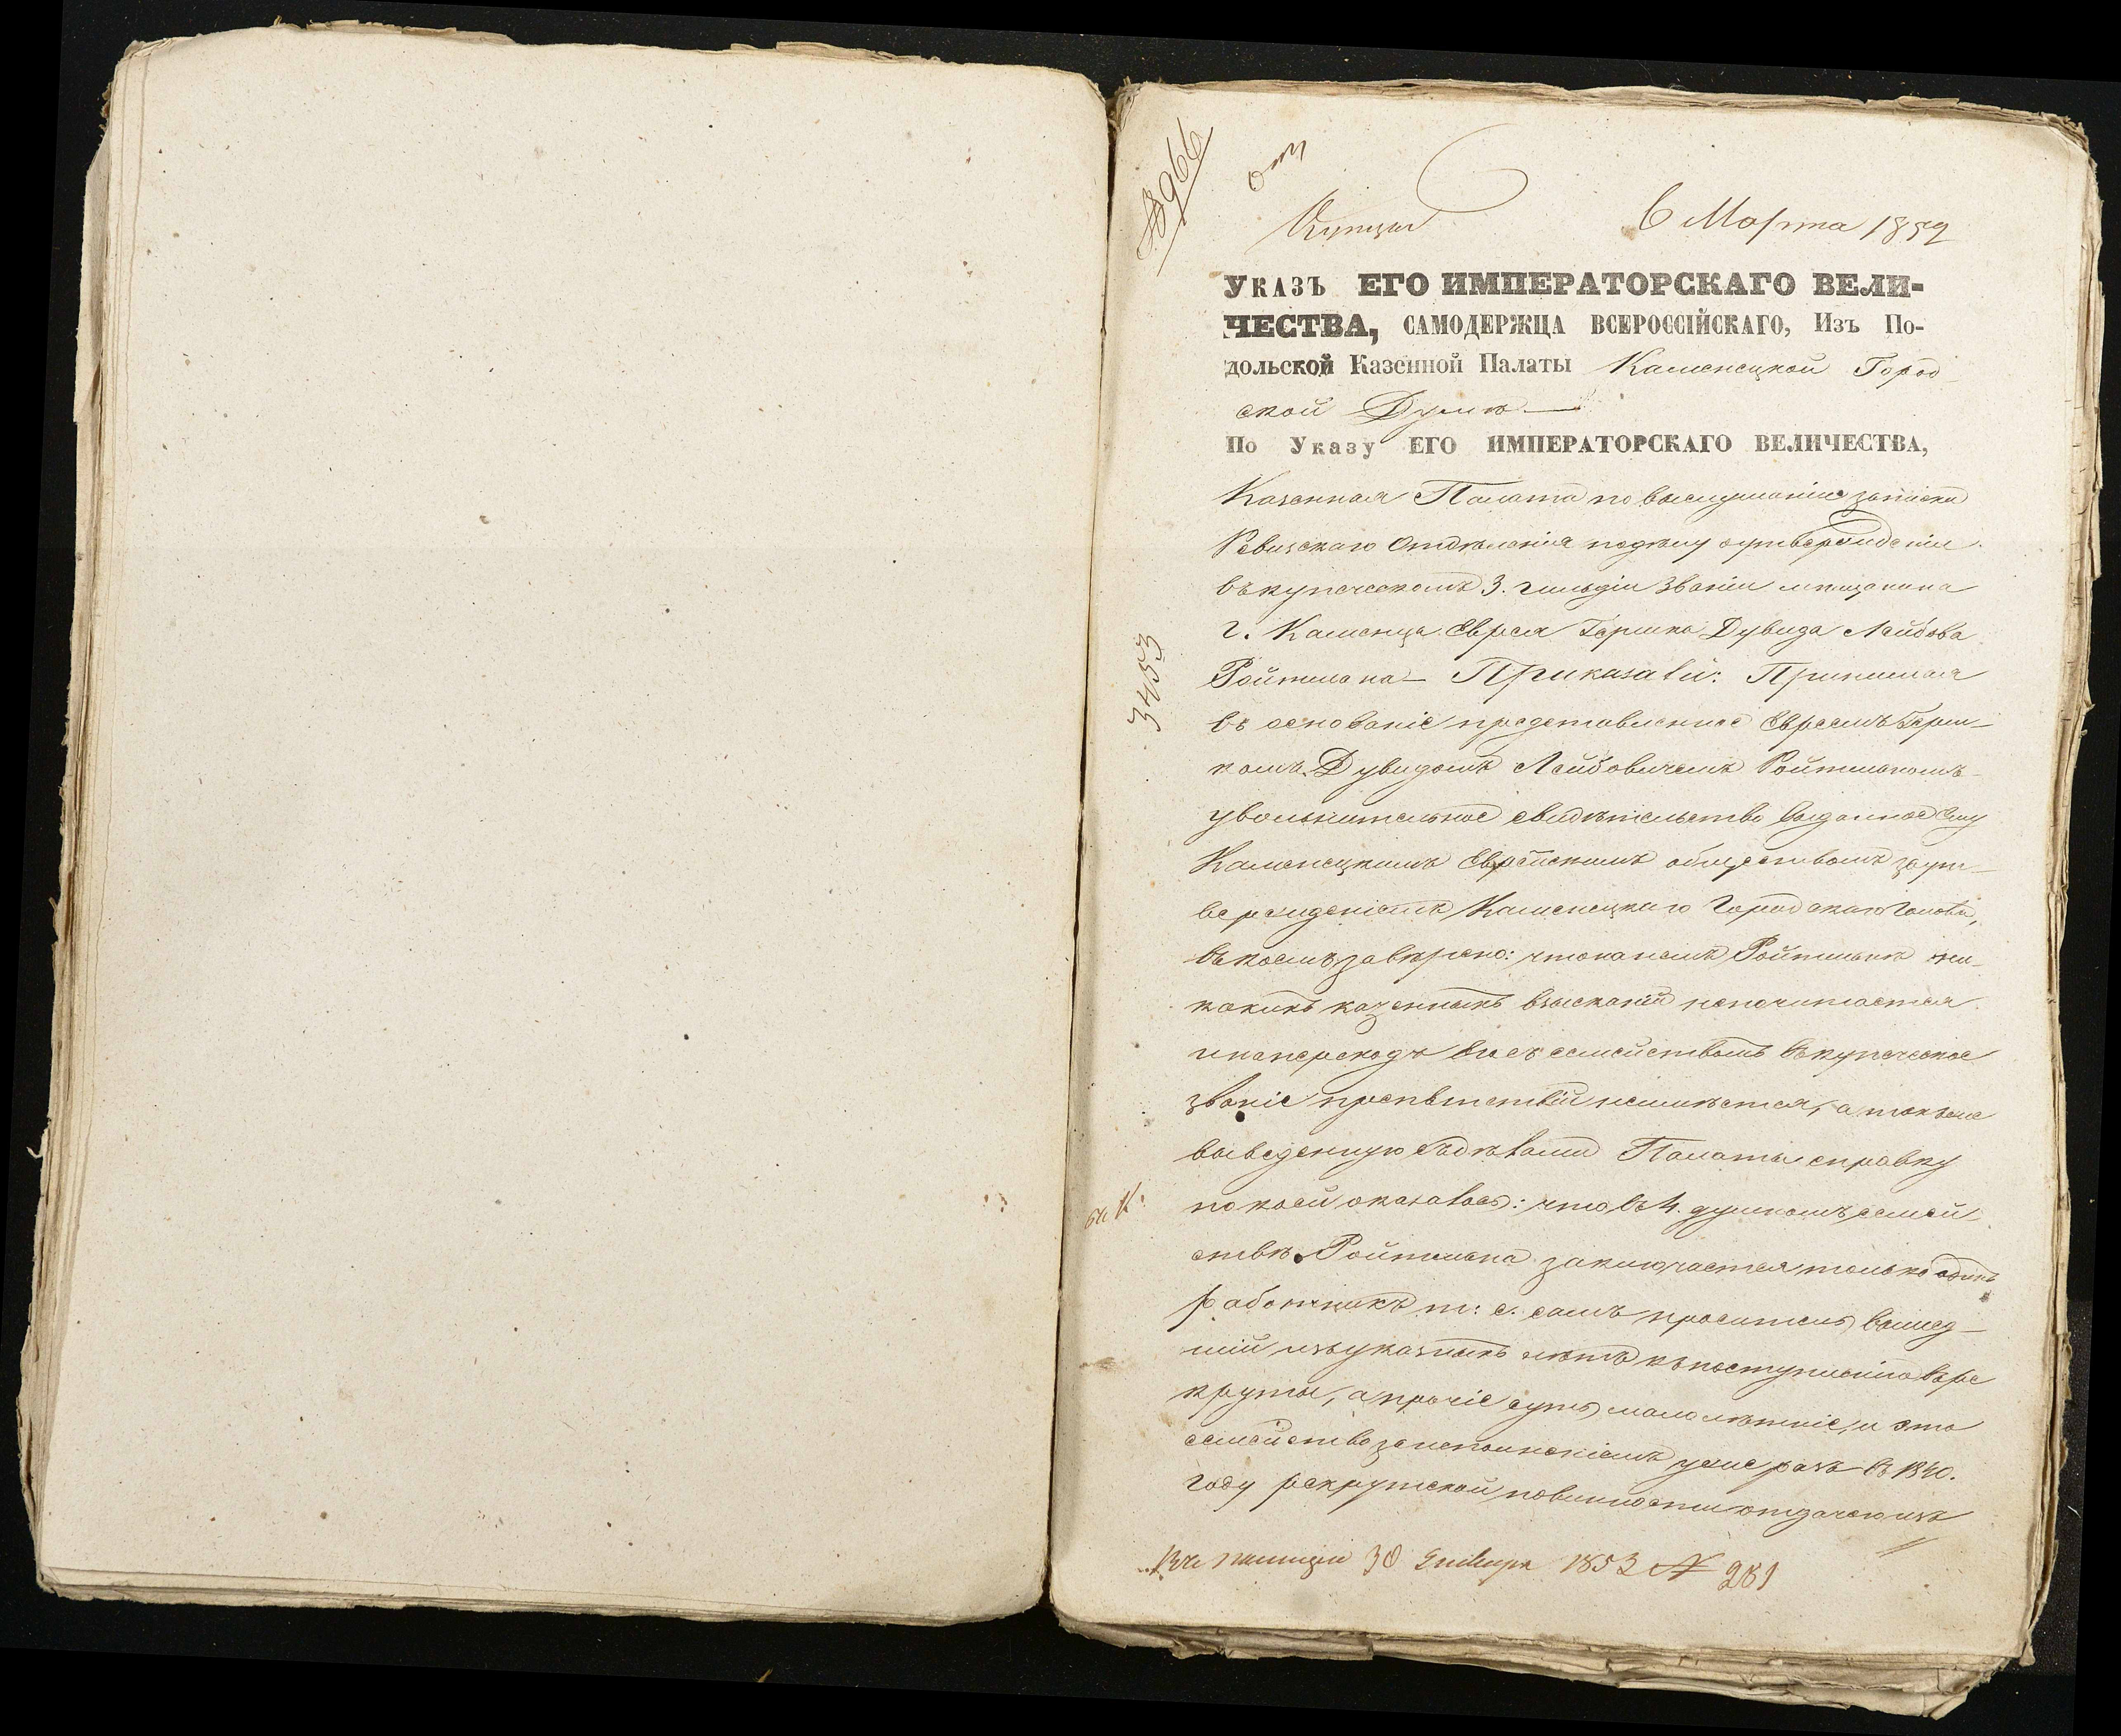 8966
От
Купцы
6 Марта 1852
УКАЗЪ ЕГО ИМПЕРАТОРСКАГО ВЕЛИ-
ЧЕСТВА, САМОДЕРЖЦА ВСЕРОССІЙСКАГО, Изъ По-
дольской Казенной Палаты Каменецкой Город
ской Думѣ —
По Указу ЕГО ИМПЕРАТОРСКАГО ВЕЛИЧЕСТВА,
Казенная Палата по выслушаніи записки
Ревизскаго Отдѣленія по дѣлу о утвержденіи
въ купеческомъ 3. гильдіи званіи мѣщанина
г. Каменца Еврея Гершка Дувида Лейбова
3453
Ройтмана — Приказали: Принимая
въ основаніе представленное Евреемъ Герш-
комъ Дувидомъ Лейбовичемъ Ройтманомъ
увольнительное свидѣтельство выданное ему
Каменецкимъ Еврейскимъ обществомъ за ут-
вержденіемъ Каменецкаго Городскаго Головы,
въ коемъ завѣрено: что на немъ Ройтманѣ ни-
какихъ казенныхъ взысканій не почитается
и на переходъ его съ семействомъ въ купеческое
званіе препятствій не имѣется, а также
выведенную дѣлами Палаты справку
по коей оказалось: что въ 4. душномъ семей
ствѣ Ройтмана заключается только одинъ
работникъ т: е. самъ проситель вышед-
шій изъ указныхъ лѣтъ къ поступленію въ ре
круты, а прочіе суть малолѣтніе, и это
семейство за исполненіемъ уже разъ въ 1840.
году рекрутской повинности отдачею изъ
Въ полицію 30 Января 1853 № 281